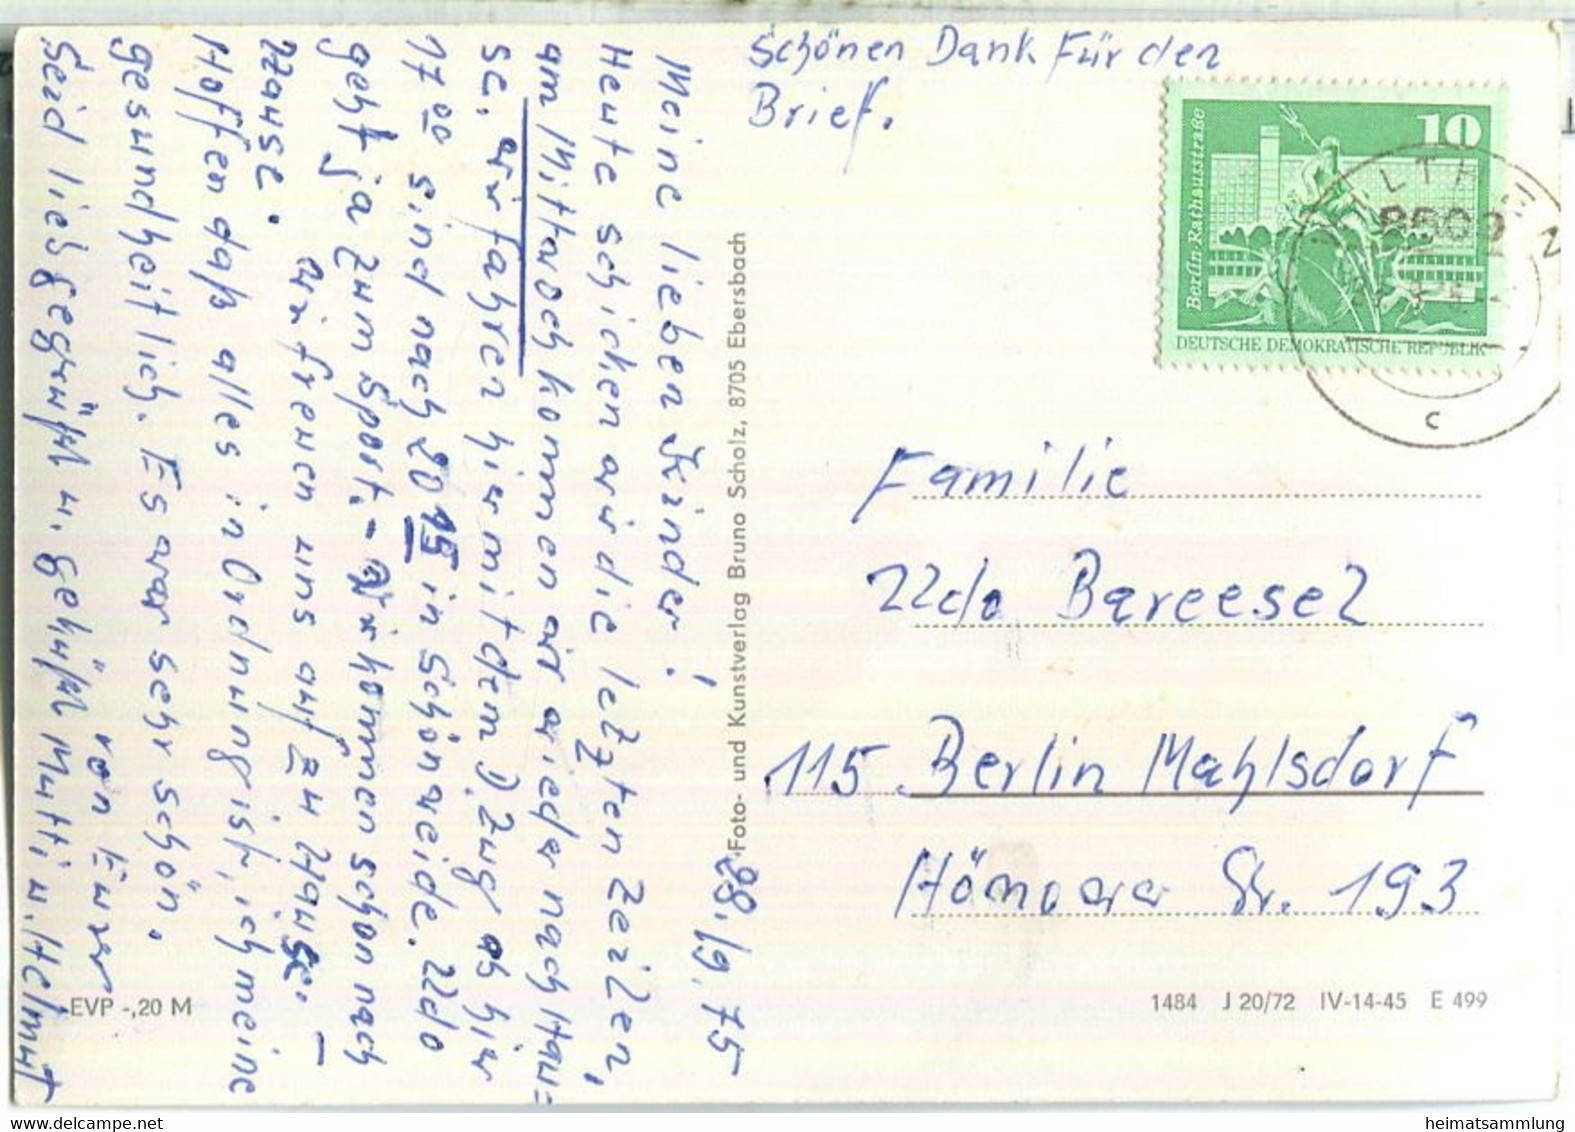 Schönen Dank Für den
Brief.
28. 9. 75
Meine lieben Kinder!
Heute schicken wir die letzten Zeilen,
am Mittwoch kommen wir wieder nach Hau=
se. wir fahren hier mit dem D.Zug ab hier
17 00 sind nach 20 15 in Schönweide. Udo
geht ja zum Sport. – Wir kommen schon nach
Hause. Wir freuen uns auf zu Hause. –
Hoffen daß alles in Ordnung ist, ich meine
gesundheitlich. Es war sehr schön.
Seid lieb gegrüßt u. geküßt von Eurer
Mutti u. Helmut
Foto- und Kunstverlag Bruno Scholz, 8705 Ebersbach
EVP -,20 M
10
Berlin-Rathausstraße
DEUTSCHE DEMOKRATISCHE REPUBLIK
c
Familie
Udo Bareesel
115 Berlin Mahlsdorf
Str. 193
1484 J 20/72 IV-14-45 E 499
heimatsammlung